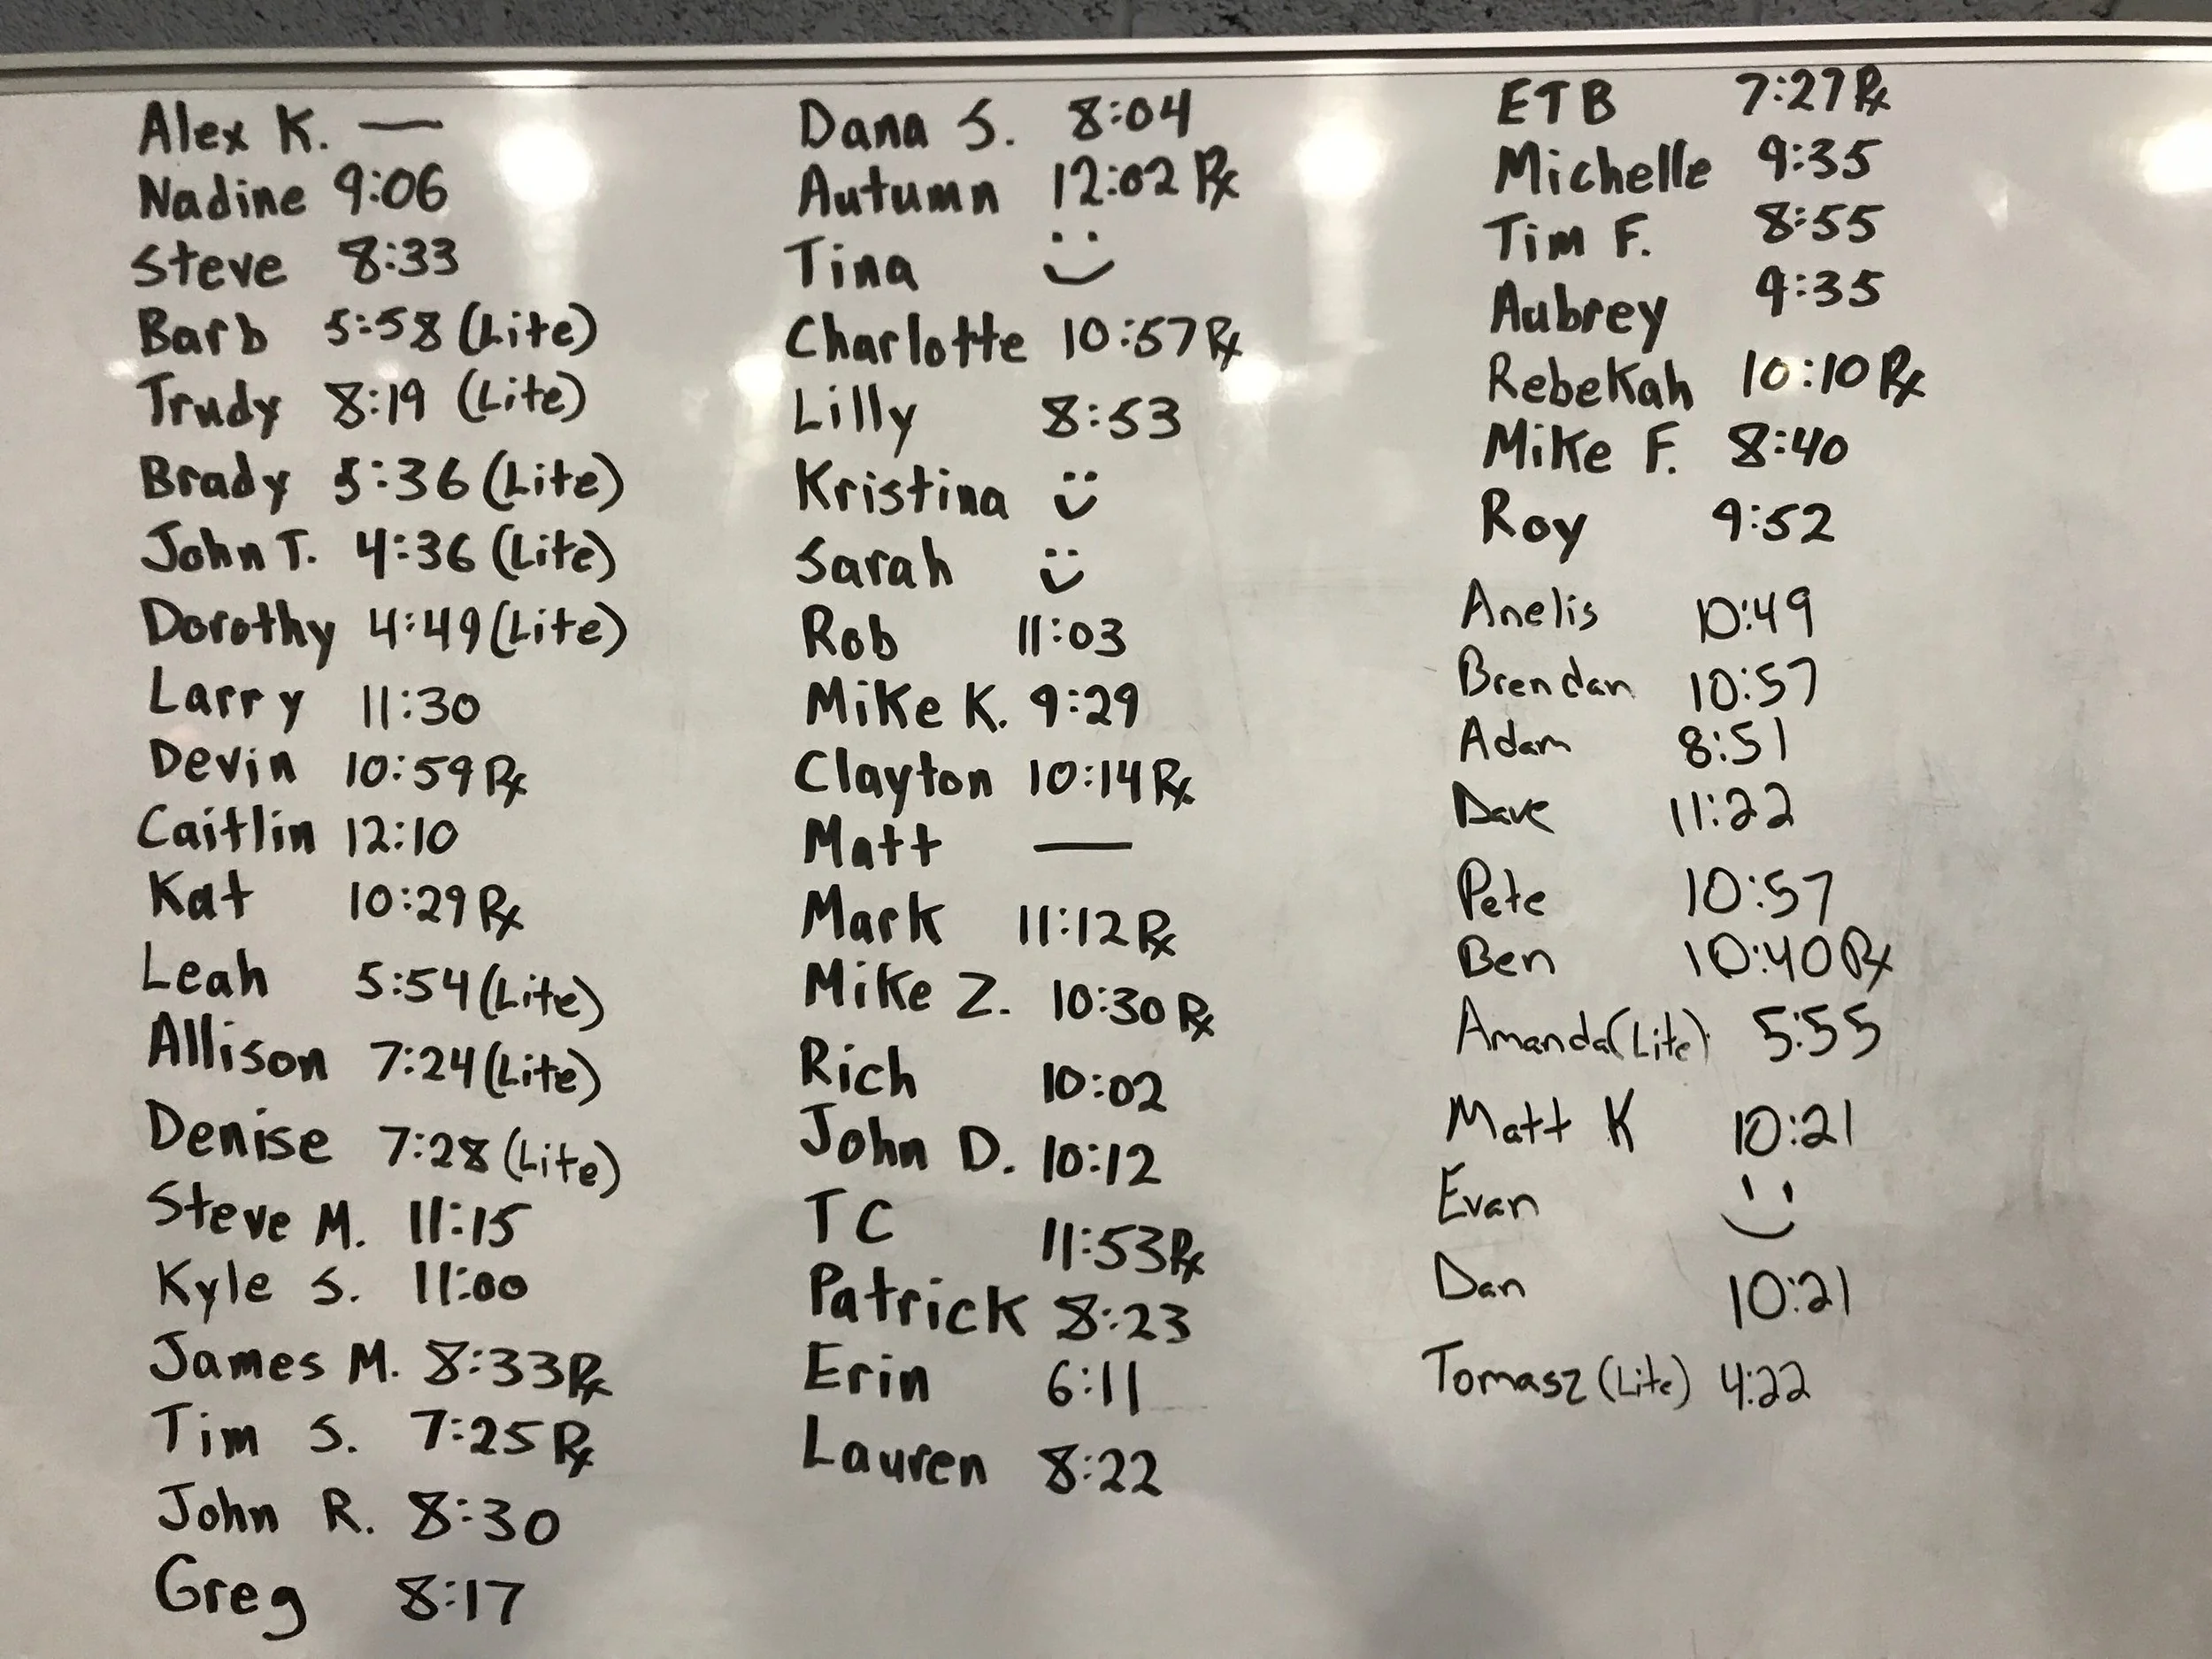 Alex K. —
Nadine 9:06
Steve 8:33
Barb 5:58 (Lite)
Trudy 8:19 (Lite)
Brady 5:36 (Lite)
John T. 4:36 (Lite)
Dorothy 4:49 (Lite)
Larry 11:30
Devin 10:59 Rx
Caitlin 12:10
Kat 10:29 Rx
Leah 5:54 (Lite)
Allison 7:24 (Lite)
Denise 7:28 (Lite)
Steve M. 11:15
Kyle S. 11:00
James M. 8:33 Rx
Tim S. 7:25 Rx
John R. 8:30
Greg 8:17
Dana S. 8:04
Autumn 12:02 Rx
Tina :)
Charlotte 10:57 Rx
Lilly 8:53
Kristina :)
Sarah :)
Rob 11:03
Mike K. 9:29
Clayton 10:14 Rx
Matt —
Mark 11:12 Rx
Mike Z. 10:30 Rx
Rich 10:02
John D. 10:12
TC 11:53 Rx
Patrick 8:23
Erin 6:11
Lauren 8:22
ETB 7:27 Rx
Michelle 9:35
Tim F. 8:55
Aubrey 9:35
Rebekah 10:10 Rx
Mike F. 8:40
Roy 9:52
Anelis 10:49
Brendan 10:57
Adam 8:51
Dave 11:22
Pete 10:57
Ben 10:40 Rx
Amanda (Lite) 5:55
Matt K 10:21
Evan :)
Dan 10:21
Tomasz (Lite) 4:22